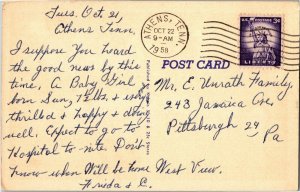 Tues. Oct 21,
Athens Tenn,
I suppose You heard
the good news by this
time, A Baby Girl
born Sun, 12 lbs, & very
thrilled & happy & doing
well, Expect to go to
Hospital to-nite Don't
know when Will be home
Freida &
ATHENS, TENN.
OCT 22
9-AM
1958
U.S. POSTAGE
3¢
LIBERTY
POST CARD
Mr. E. Unrath Family,
243 Jamaica Ave,
Pittsburgh 29
Pa
West View.